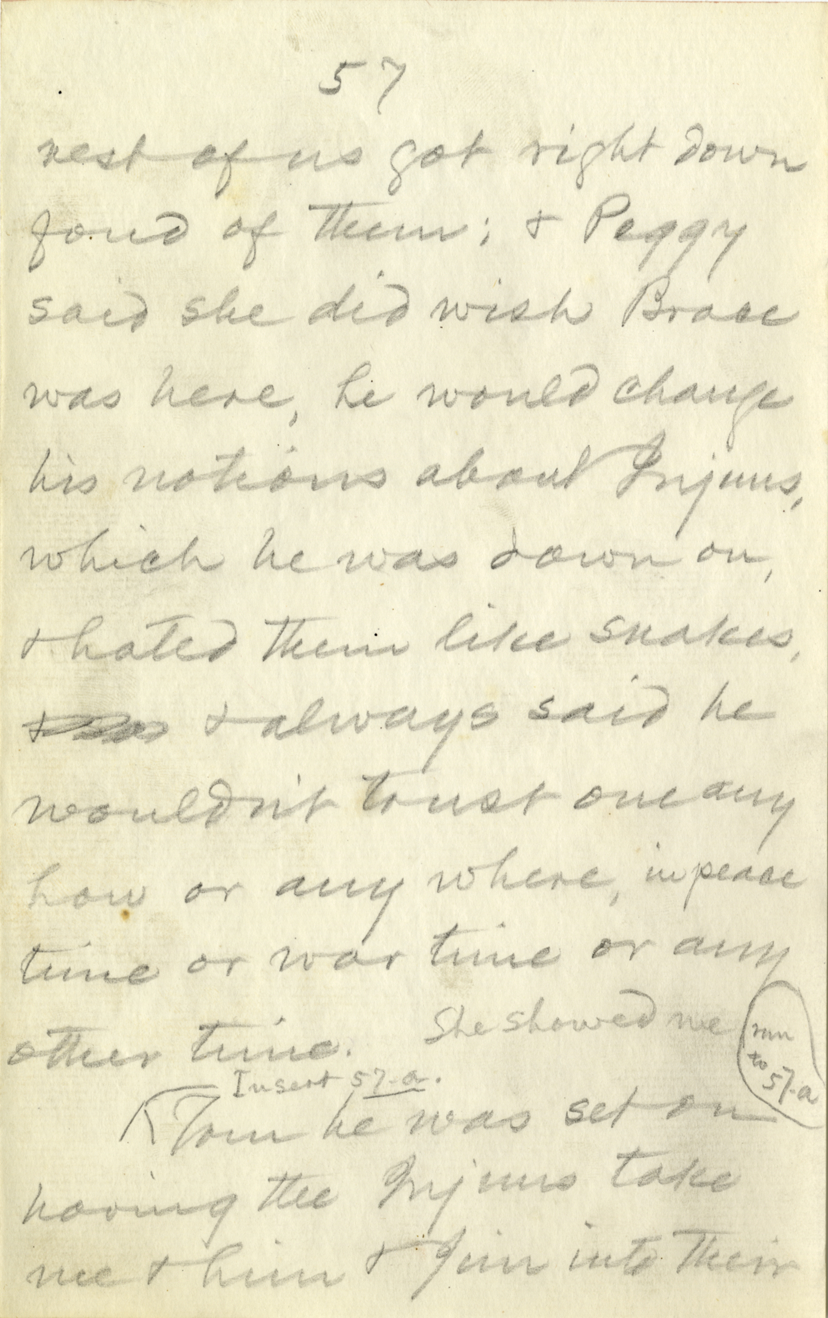 57
rest of us got right down
fond of them; & Peggy
said she did wish Brace
was here, he would change
his notions about Injuns,
which he was down on,
& hated them like snakes,
& always said he
wouldn't trust one any
how or any where, in peace
time or war time or any
other time. She showed me
run
to 57-a
Insert 57-a.
Tom he was set on
having the Injuns take
me & him & Jim into their